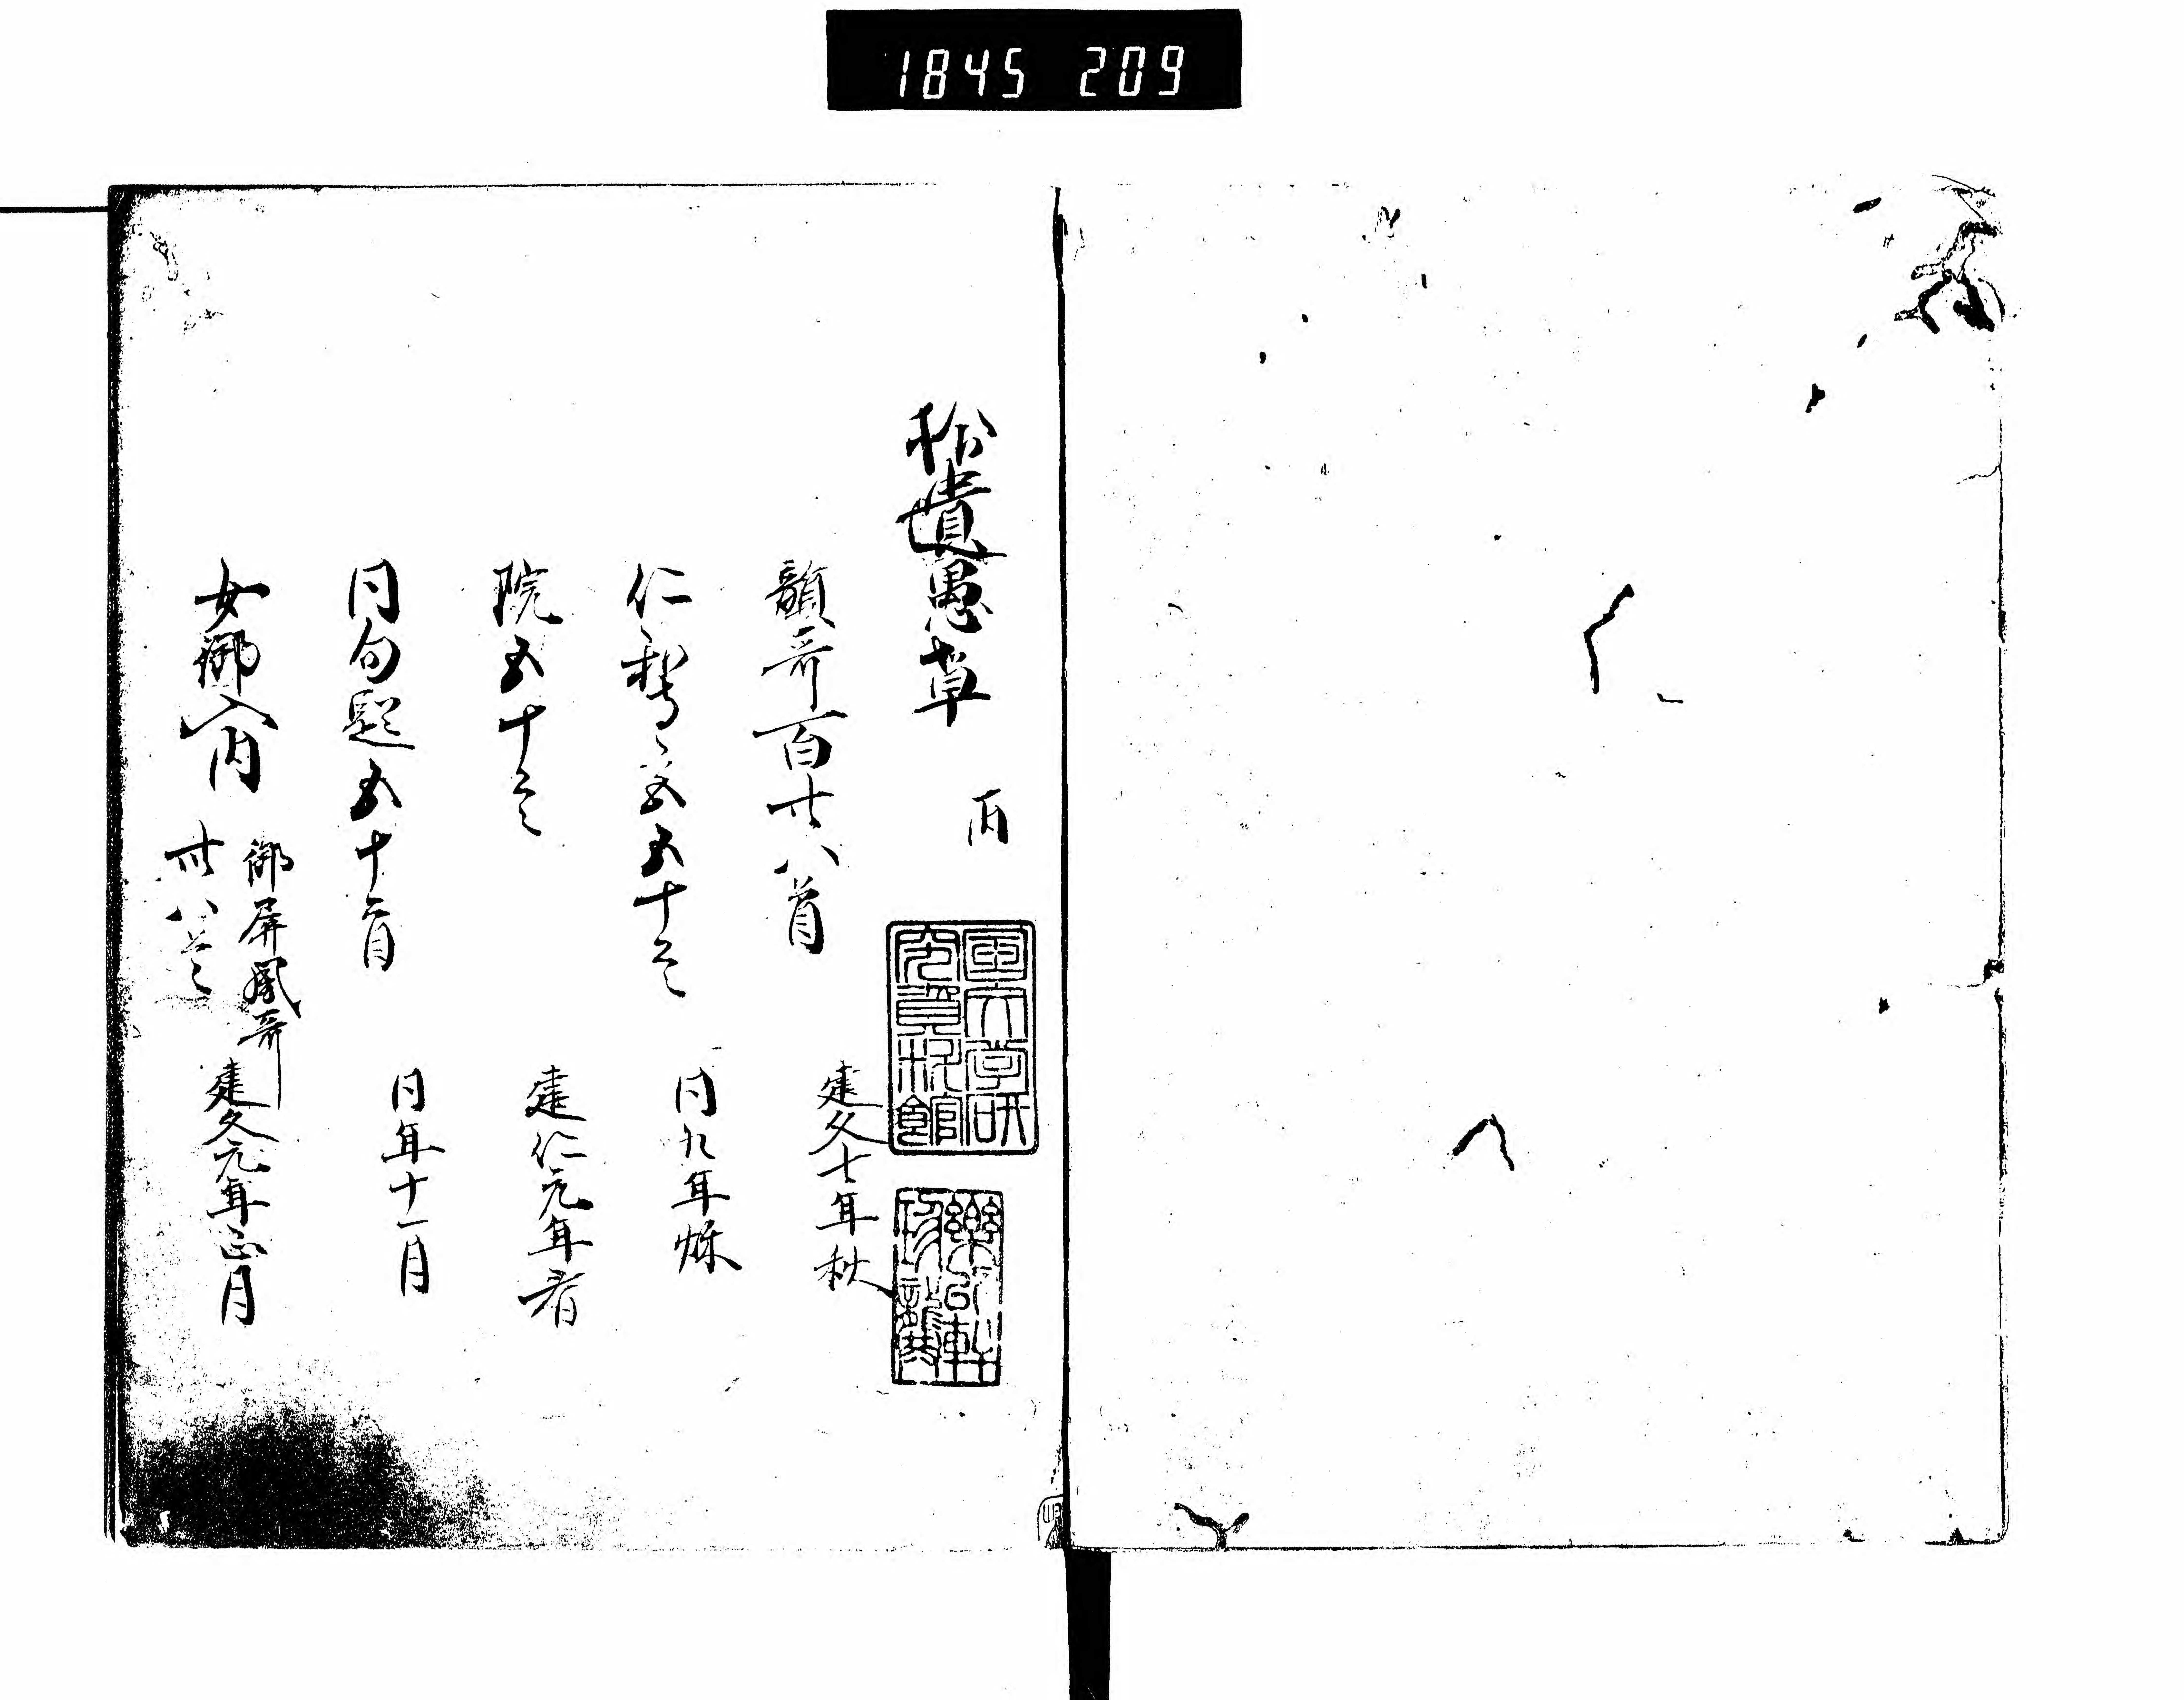 1845 209
拾遺愚草
韻哥百廿八首 建久七年秋
仁和寺宮五十首 同九年秌
院五十首 建仁元年春
同句題五十首 同年十一月
女御入内 御屏風哥 卅八首 建久元年正月
国文学研
究資料館